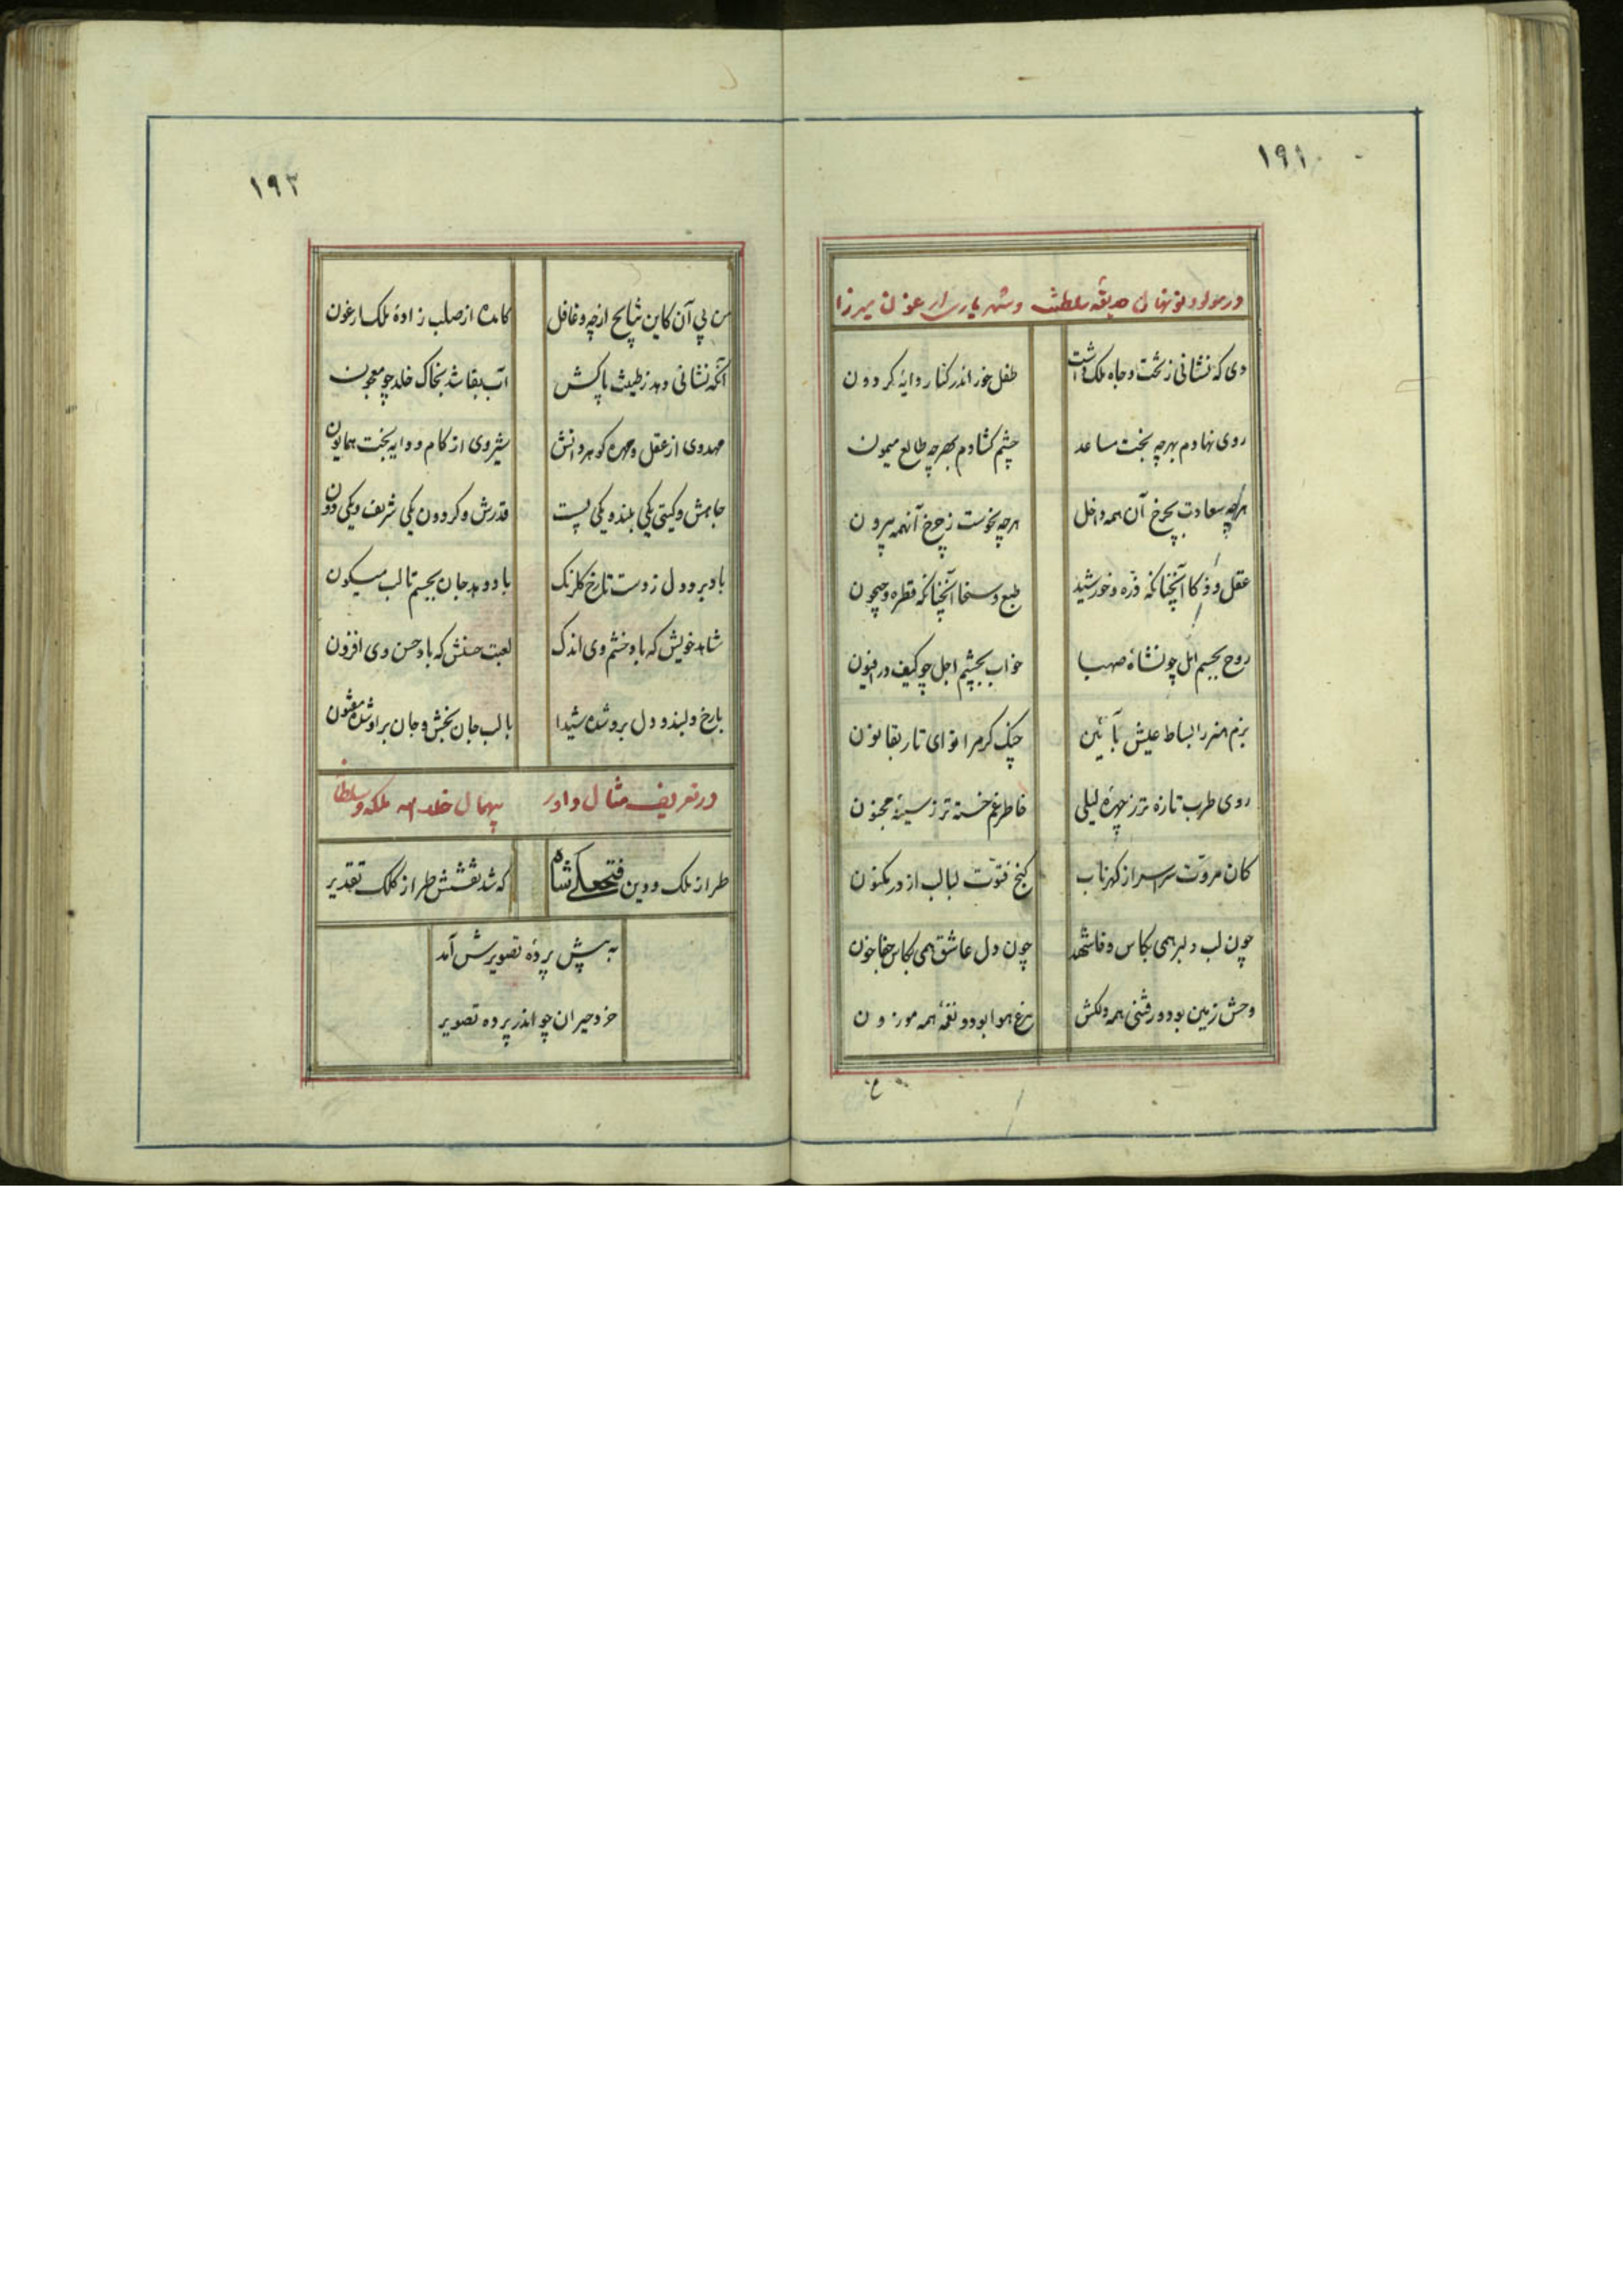 ۱۹۱
در مولود نونهال حدیقه سلطنت و شهریاری ارغون میرزا
دی که نشانی ز تخت و جاه ملک داشت
طفل خور اندر کنار دایهٔ کردون
روی نهادم بهر چه بخت مساعد
چشم کشادم بهر چه طالع میمون
هرچه سعادت بچرخ آن همه داخل
هرچه نحوست ز چرخ آنهمه بیرون
عقل و ذکا آنچنانکه ذره و خورشید
طبع و سخا آنچنانکه قطره و جیحون
روح بجسم امل چو نشاهٔ صهبا
خواب بچشم اجل چو کیف در افیون
بزم هنر را بساط عیش بآئین
چنک کرم را نوای تار بقانون
روی طرب تازه تر ز چهرهٔ لیلی
خاطر غم خسته تر ز سینهٔ مجنون
کان مروّت سراسر از کهر ناب
کنج فتوّت لبالب از در مکنون
چون لب دلبر همی بکاس وفا شهد
چون دل عاشق همی بکاس جفا خون
وحش زمین بود و رفتنی همه دلکش
مرغ هوا بود و نغمهٔ همه موزون
۱۹۲
من پی آن کاین نتایح از چه و غافل
کامده از صلب زادهٔ ملک ارغون
آنکه نشانی دهد ز طینت پاکش
آب بقا شد بخاک خلد چو معجون
مهد وی از عقل و مهره کوهر دانش
شیر وی از کام و دایه بخت همایون
جاهش و کیتی یکی بلند و یکی پست
قدرش و کردون یکی شریف و یکی دون
باد برد دل ز دست تا رخ کلرنک
باد دهد جان بجسم تا لب میکون
شاهد خویش که باد خشم وی اندک
لعبت حسنش که باد حسن وی افزون
با رخ دلبند و دل برو شده شیدا
با لب جان بخش و جان بر او شده مفتون
در تعریف مثال داور بیهمال خلد الله ملکه و سلطانه
طراز ملک و دین فتحعلی شاه
که شد نقشش طراز کلک تقدیر
به پیش پردهٔ تصویرش آمد
خرد حیران چو اندر پرده تصویر